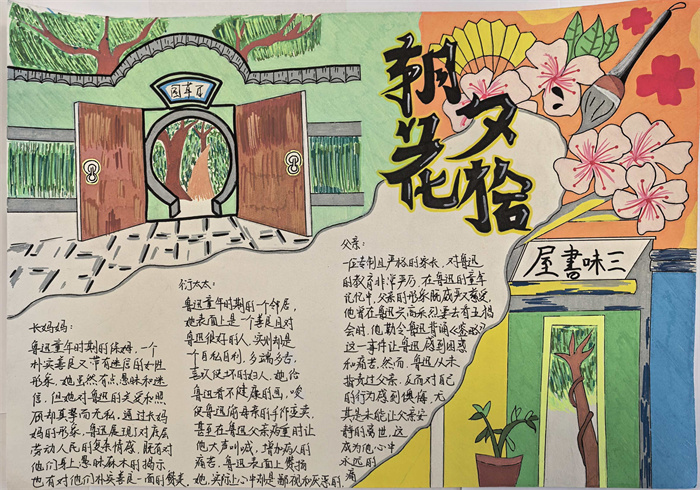 朝花夕拾
百草园
三味書屋
长妈妈:
鲁迅童年时期的保姆,一个
朴实善良又带有迷信的女性
形象。她虽然有点愚昧和迷
信,但她对鲁迅的关爱和照
顾却真挚而无私。通过长妈
妈的形象,鲁迅展现了对底层
劳动人民的复杂情感,既有对
他们身上愚昧麻木的揭示
也有对他们朴实善良一面的赞美
衍太太:
鲁迅童年时期的一个邻居,
她表面上是一个善良且对
鲁迅很好的人,实则却是一
个自私自利,多端多舌,
喜欢使坏的妇人。她给
鲁迅看不健康的画,唆
使鲁迅偷母亲的手饰变卖,
甚至在鲁迅父亲病重时让
他大声叫喊,增加病人的
痛苦。鲁迅表面上赞扬
她,实际上心中却是鄙视和厌恶的.
父亲:
一位专制且严格的家长,对鲁迅
的教育非常严厉。在鲁迅的童年
记忆中,父亲的形象
他曾在鲁迅兴高采烈要去看五猖
会时,他勒令鲁迅背诵《鉴略》
这一事件让鲁迅感到困惑
和痛苦。然而,鲁迅从未
指责过父亲,反而对自己
的行为感到懊悔,尤
其是未能让父亲安
静的离世,这
成为他心中
永远的
痛